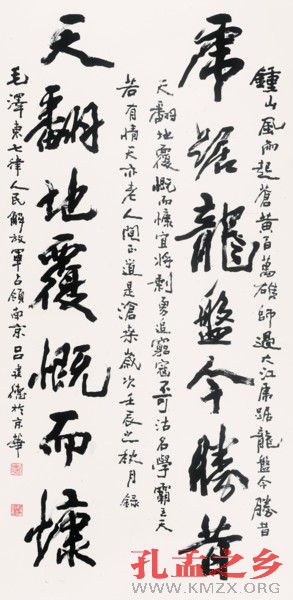 鍾山風雨起蒼黄百萬雄師過大江虎踞龍盤今勝昔
虎踞龍盤今勝昔
天翻地覆慨而慷宜將剩勇追窮寇不可沽名學霸王天
若有情天亦老人間正道是滄桑歲次壬辰秋月錄
天翻地覆慨而慷
毛澤東七律人民解放軍占領南京吕建德於京華
孔孟之乡
WWW.KMZX.ORG